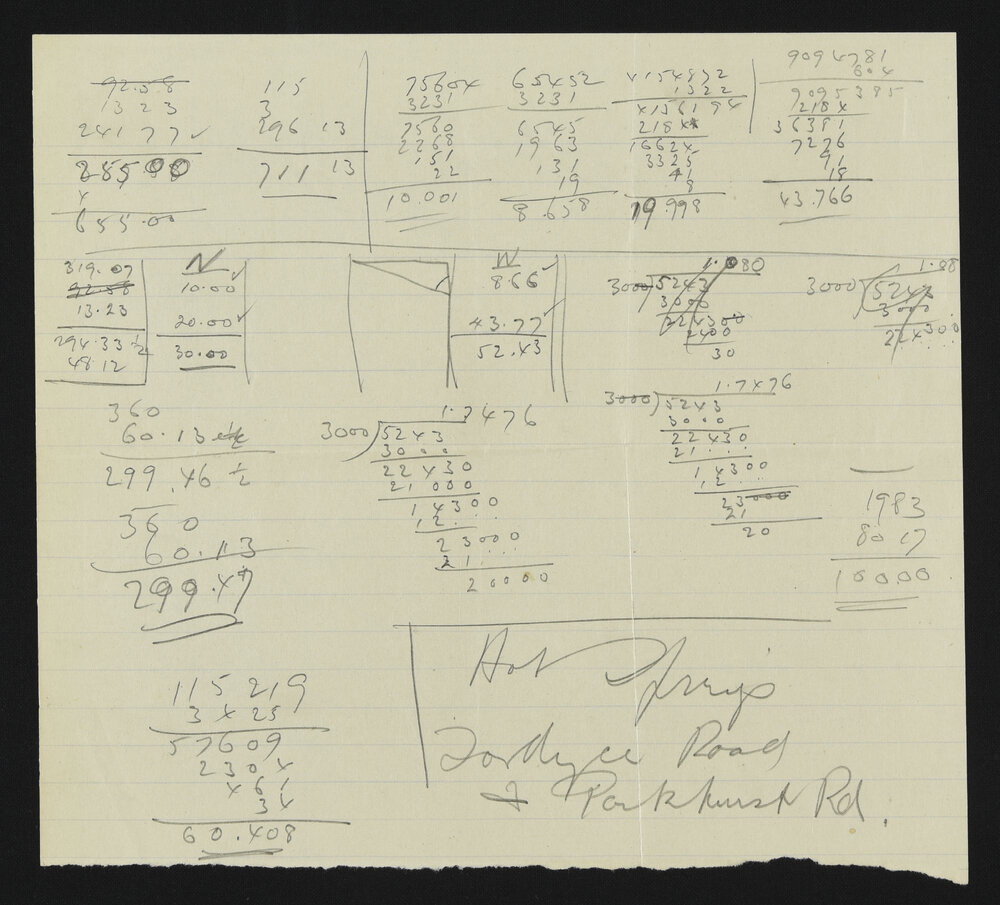 92.58
1323
24177 ✓
28500
4
655.00
115
3
296 13
711 13
75604
3231
7560
2268
151
22
10.001
65452
3231
6545
1963
131
19
8.658
4154872
1322
4156194
2184
16624
3325
41
8
19.998
9094781
604
9095385
2184
36381
7276
91
18
43.766
319.07
92.58
13.23
294.33 ½
48.12
N
10.00 ✓
20.00 ✓
30.00
W
8.66 ✓
43.77 ✓
52.43
1.080
3000)5243
3000
224300
2400
30
1.08
3000)5243
3000
224300
360
60.13 ½
299.46 ½
360
60.13
299.47
1.7476
3000)5243
30...
22430
21000
14300
12...
23000
21...
20000
1.7476
3000)5243
30..0
22430
21...
14300
12...
23000
21
20
1983
8017
10000
115219
3425
57609
2304
461
34
60.408
Hot Springs
Fordyce Road
& Parkhurst Rd.